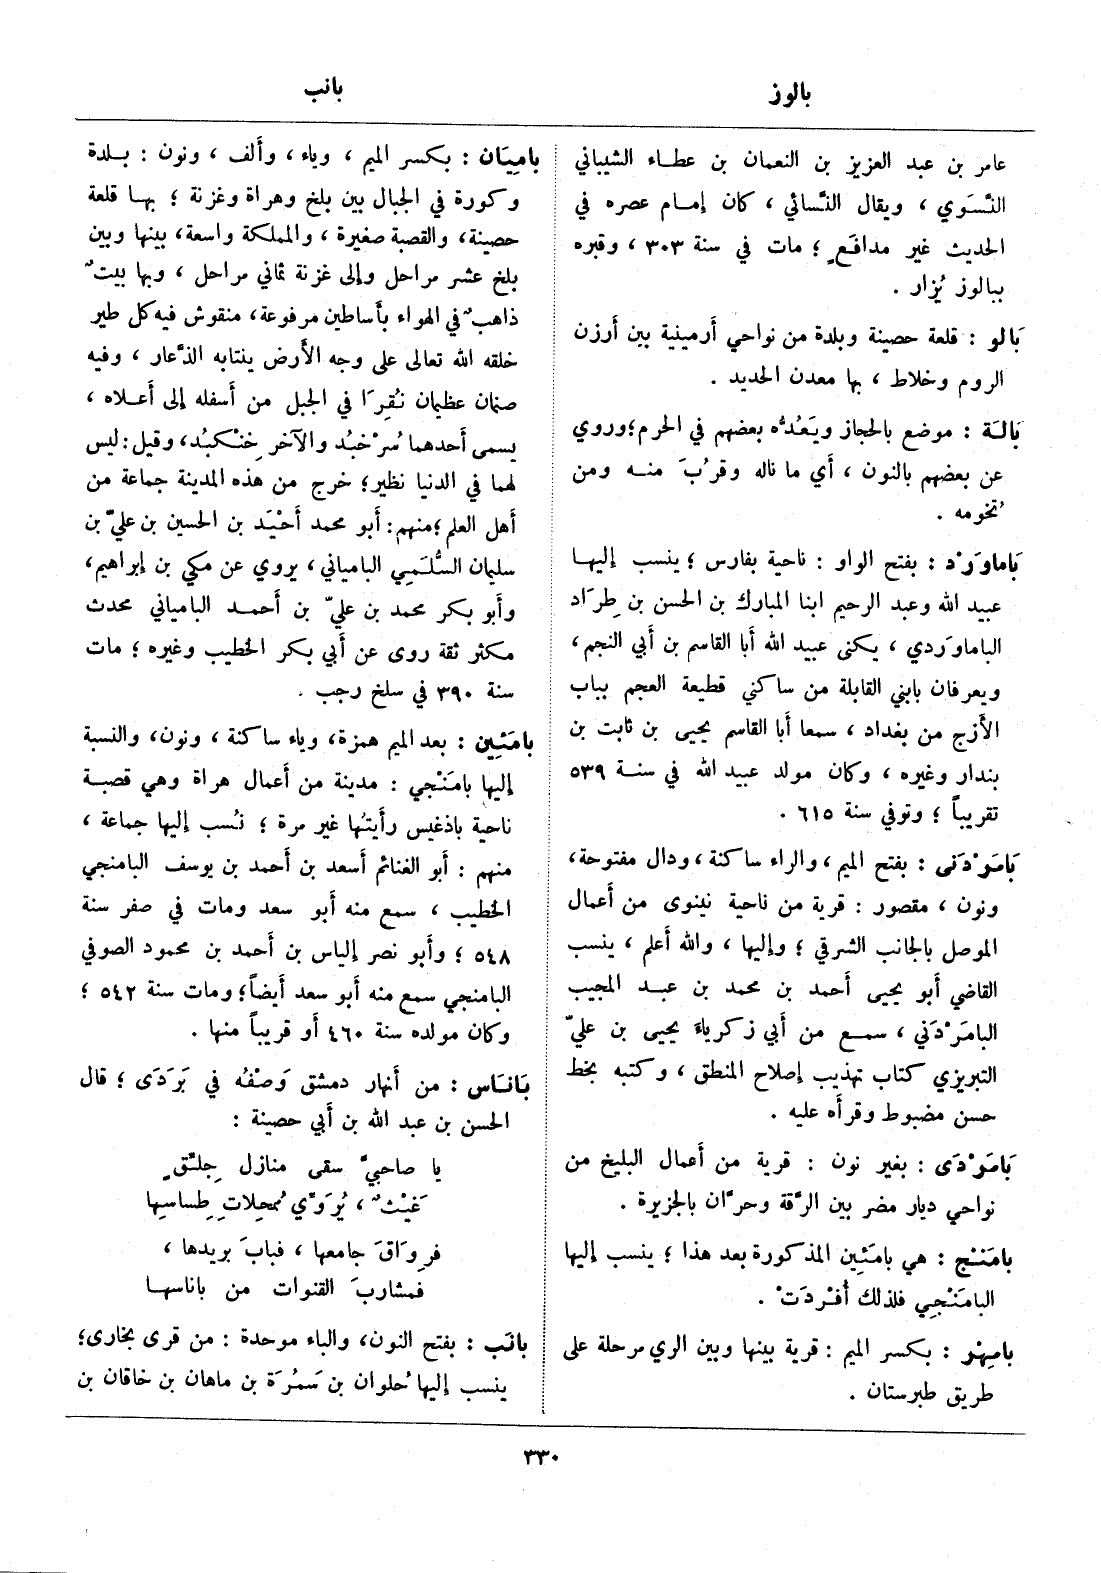 بالوز
بانب
عامر بن عبد العزيز بن النعمان بن عطاء الشيباني
النَّسَوي ، ويقال النَّسائي ، كان إمام عصره في
الحديث غير مدافَعٍ ؛ مات في سنة ٣٠٣ ، وقبره
ببالوز يُزار .
بَالو : قلعة حصينة وبلدة من نواحي أَرمينية بين أَرزن
الروم وخلاط ، بها معدن الحديد .
بَالَة : موضع بالحجاز ويَعُدُّه بعضهم في الحرم ؛ وروي
عن بعضهم بالنون ، أَي ما ناله وقرُبَ منه ومن
تُخومه .
بَاماوَرْد : بفتح الواو : ناحية بفارس ؛ ينسب إليها
عبيد الله وعبد الرحيم ابنا المبارك بن الحسن بن طِرَاد
الباماوَردي ، يكنى عبيد الله أَبا القاسم بن أَبي النجم ،
ويعرفان بابني القابلة من ساكني قطيعة العجم بباب
الأَزج من بغداد ، سمعا أَبا القاسم يحيى بن ثابت بن
بندار وغيره ، وكان مولد عبيد الله في سنة ٥٣٩
تقريباً ؛ وتوفي سنة ٦١٥ .
بَامَرْدَنى : بفتح الميم ، والراء ساكنة ، ودال مفتوحة ،
ونون ، مقصور : قرية من ناحية نينوى من أَعمال
الموصل بالجانب الشرقي ؛ وإليها ، والله أَعلم ، ينسب
القاضي أَبو يحيى أَحمد بن محمد بن عبد المجيب
البامَرْدَني ، سمع من أَبي زكرياءَ يحيى بن عليّ
التبريزي كتاب تهذيب إصلاح المنطق ، وكتبه بخط
حسن مضبوط وقرأَه عليه .
بَامَرْدَى : بغير نون : قرية من أَعمال البليخ من
نواحي ديار مضر بين الرَّقة وحرَّان بالجزيرة .
بامَنْج : هي بامَئِين المذكورة بعد هذا ؛ ينسب إليها
البامَنْجِي فلذلك أُفْرِدَتْ .
بامِهْر : بكسر الميم : قرية بينها وبين الري مرحلة على
طريق طبرستان .
بامِيَان : بكسر الميم ، وياء ، وأَلف ، ونون : بلدة
وكورة في الجبال بين بلخ وهراة وغزنة ؛ بها قلعة
حصينة ، والقصبة صغيرة ، والمملكة واسعة ، بينها وبين
بلخ عشر مراحل وإلى غزنة ثماني مراحل ، وبها بيتٌ
ذاهبٌ في الهواء بأَساطين مرفوعة ، منقوش فيه كل طير
خلقه الله تعالى على وجه الأَرض ينتابه الذُّعار ، وفيه
صنمان عظيمان نُقِرَا في الجبل من أَسفله إلى أَعلاه ،
يسمى أَحدهما سُرْخبُد والآخر خِنْكبُد ، وقيل : ليس
لهما في الدنيا نظير ؛ خرج من هذه المدينة جماعة من
أَهل العلم ؛ منهم : أَبو محمد أَحْيَد بن الحسين بن عليّ بن
سليمان السُّلَمي الباميانى ، يروي عن مكي بن إبراهيم ،
وأَبو بكر محمد بن عليّ بن أَحمد الباميانى محدث
مكثر ثقة روى عن أَبي بكر الخطيب وغيره ؛ مات
سنة ٣٩٠ في سلخ رجب .
بامَئِين : بعد الميم همزة ، وياء ساكنة ، ونون ، والنسبة
إليها بامَنْجي : مدينة من أَعمال هراة وهي قصبة
ناحية باذغيس رأَيتُها غير مرة ؛ نُسب إليها جماعة ،
منهم : أَبو الغنائم أَسعد بن أَحمد بن يوسف البامنجي
الخطيب ، سمع منه أَبو سعد ومات في صفر سنة
٥٤٨ ؛ وأَبو نصر إلياس بن أَحمد بن محمود الصوفي
البامنجي سمع منه أَبو سعد أَيضاً ؛ ومات سنة ٥٤٢ ؛
وكان مولده سنة ٤٦٠ أَو قريباً منها .
بَانَاس : من أَنهار دمشق وَصْفُه في بَرَدَى ؛ قال
الحسن بن عبد الله بن أَبي حصينة :
يا صاحبيَّ سقى منازل جِلَّقٍ
غَيْثٌ ، يُرَوِّي مُمحِلات طِساسِها
فرِوَاقَ جامعها ، فبابَ بريدها ،
فمشاربَ القنوات من باناسها
بانَب : بفتح النون ، والباء موحدة : من قرى بخارى ؛
ينسب إليها حُلوان بن سَمُرَة بن ماهان بن خاقان بن
٣٣٠